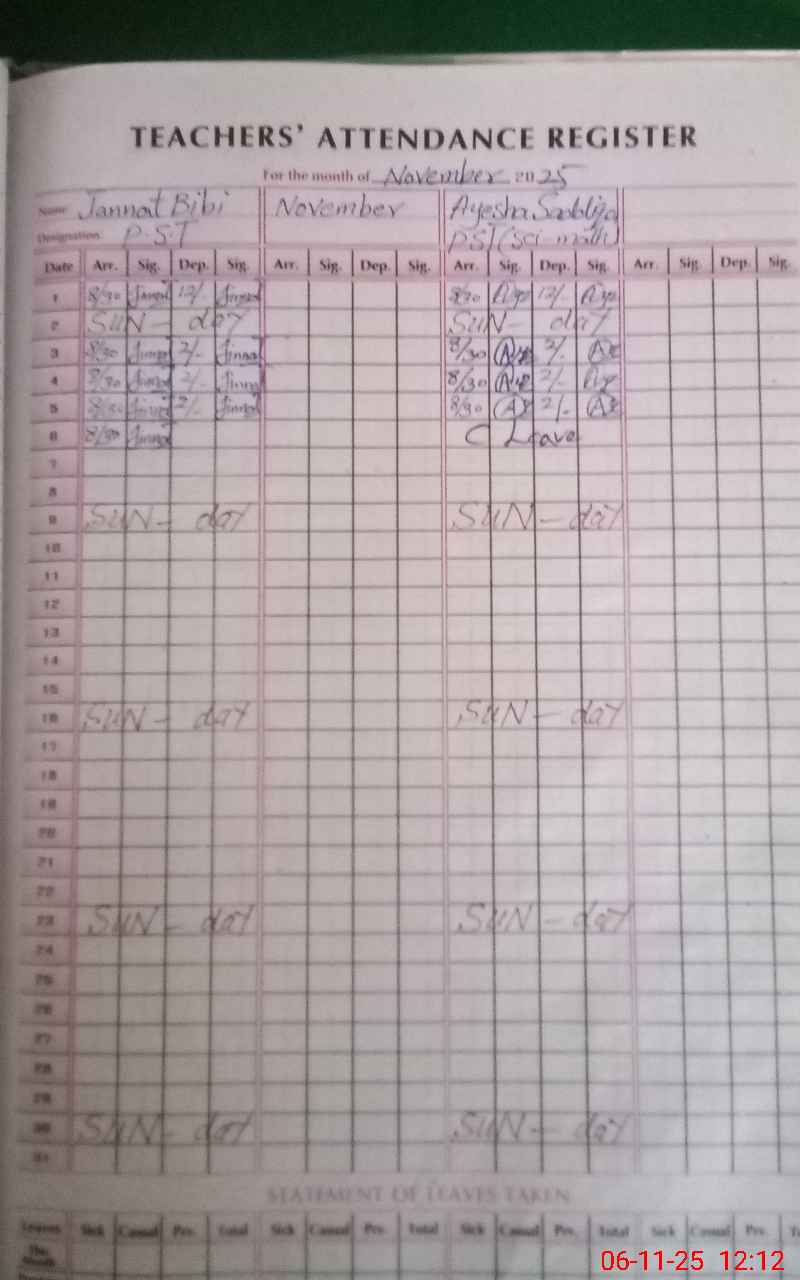 TEACHERS' ATTENDANCE REGISTER
For the month of November 2025
Name Jannat Bibi November Ayesha
Designation P.S.T PST (Sci-math)
Date Arr. Sig. Dep. Sig. Arr. Sig. Dep. Sig. Arr. Sig. Dep. Sig. Arr. Sig. Dep. Sig.
1 8/30 Jannat 12/- Jinnat 8/30 Aye 12/- Aye
2 SUN - day SUN - day
3 8/30 Jinnat 2/- Jinnat 8/30 2/-
4 8/30 Jinnat 2/- Jinnat 8/30 Aye 2/- Aye
5 8/30 Jinnat 2/- Jinnat 8/30 2/-
6 8/30 Jinnat C Leave
7
8
9 SUN - day SUN - day
10
11
12
13
14
15
16 SUN - day SUN - day
17
18
19
20
21
22
23 SUN - day SUN - day
24
25
26
27
28
29
30 SUN - day SUN - day
31
STATEMENT OF LEAVES TAKEN
Leaves Sick Casual Prv. Total Sick Casual Prv. Total Sick Casual Prv. Total Sick Casual Prv.
This
Month
06-11-25 12:12